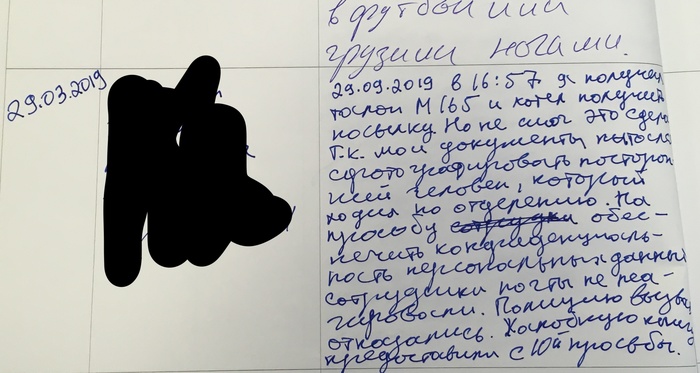 в футбол или
грузили ногами.
29.03.2019
29.09.2019 в 16:57 я получил
талон М165 и хотел получить
посылку. Но не смог это сдела
т.к. мои документы пытался
сфотографировать посторон
ний человек, который
ходил по отделению. На
просьбу обес-
печить конфиденциаль-
ность персональных данный
сотрудники почты не реа-
гировали. Полицию вызва
отказались. Жалобную книгу
предоставили с 10й просьбы.